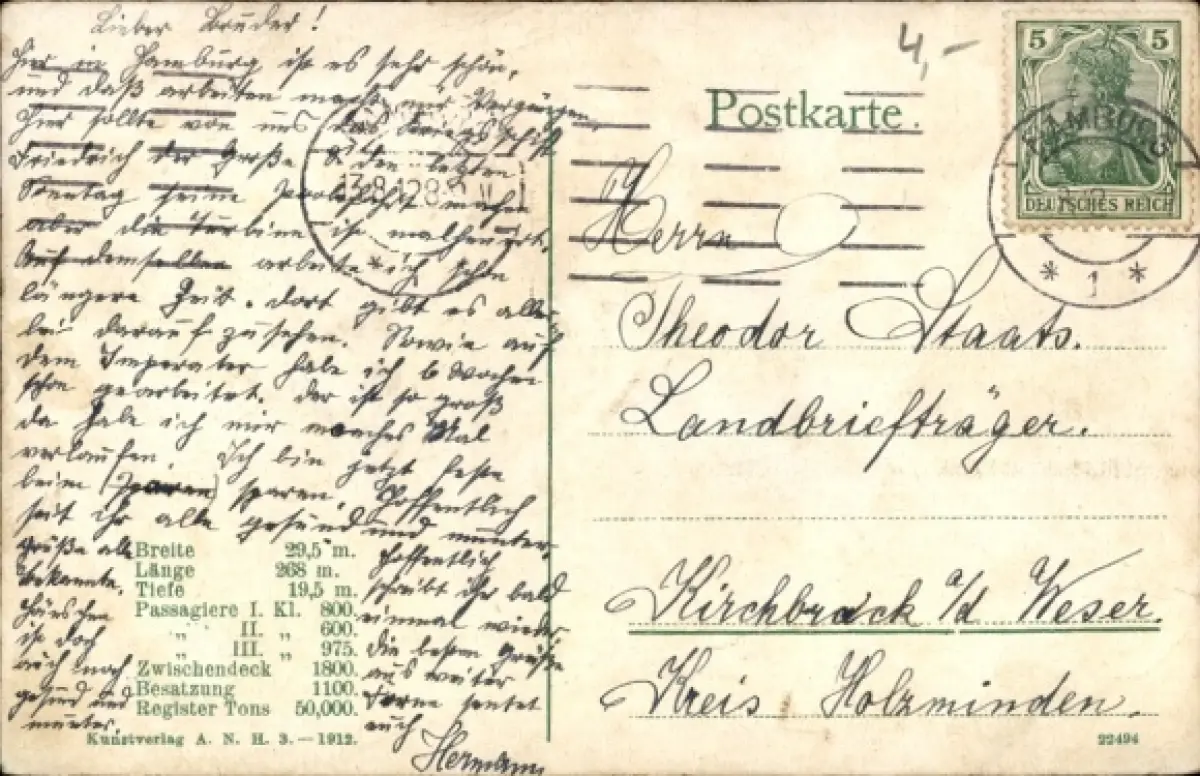 Lieber Bruder!
Hier in Hamburg ist es sehr schön,
und daß arbeiten macht mir Vergnügen.
Hier sollte von uns das Kriegsschiff
Friedrich der Große den letzten
Sonntag seine Probefahrt machen
aber die Turbine ist malheurt.
Auf demselben arbeite ich schon
längere Zeit. dort gibt es aller
lei darauf zu sehen. Sowie auf
dem Imperator habe ich 6 Wochen
schon gearbeitet. der ist so groß
da habe ich mir manches Mal
verlaufen. Ich bin jetzt feste
beim sparen. Hoffentlich
seit ihr alle gesund und munter.
Grüße alle
bekannte.
ist doch
auch noch
gesund und
munter.
Hoffentlich
schreibt ihr bald
einmal wieder.
die besten Grüße
aus weiter
Ferne sentet
euch
Hermann
Breite 29,5 m.
Länge 268 m.
Tiefe 19,5 m.
Passagiere I. Kl. 800.
„ II. „ 600.
„ III. „ 975.
Zwischendeck 1800.
Besatzung 1100.
Register Tons 50,000.
Kunstverlag A. N. H. 3.—1912.
4,-
Postkarte.
5 5
DEUTSCHES REICH
HAMBURG
* 1 *
Herrn
Theodor Staats.
Landbriefträger.
Kirchbrack a/d Weser.
Kreis Holzminden.
22494